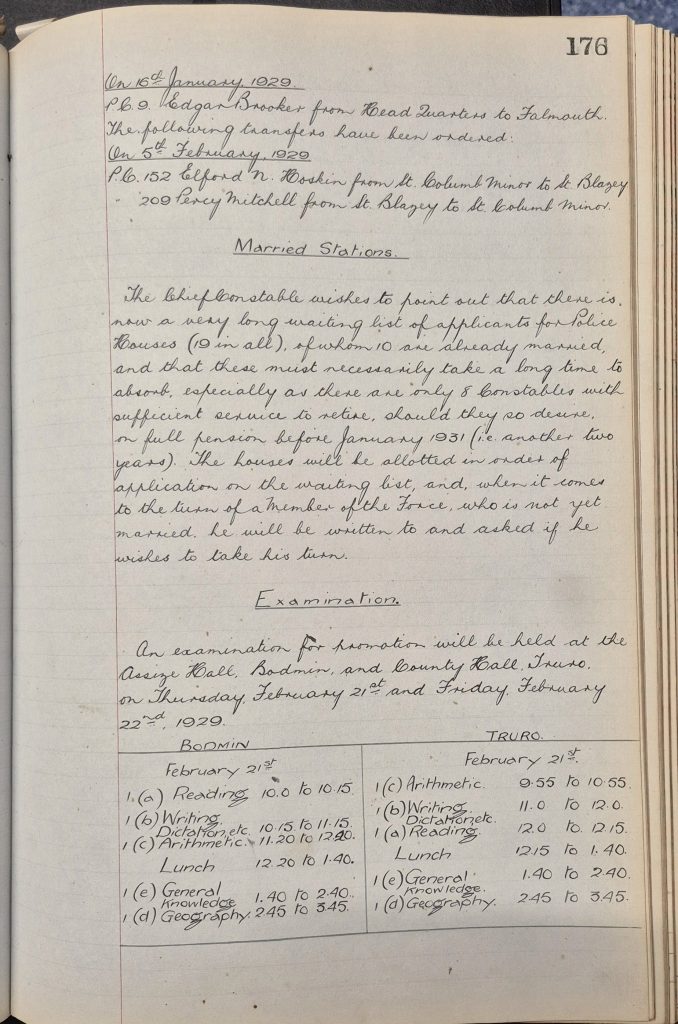 176
On 16th January, 1929.
P.C. 9. Edgar Brooker from Head Quarters to Falmouth.
The following transfers have been ordered:
On 5th February, 1929
P.C. 152 Elford N. Hoskin from St. Columb Minor to St. Blazey
" 209 Percy Mitchell from St. Blazey to St. Columb Minor.
Married Stations.
The Chief Constable wishes to point out that there is,
now a very long waiting list of applicants for Police
Houses (19 in all), of whom 10 are already married,
and that these must necessarily take a long time to
absorb, especially as there are only 8 Constables with
sufficient service to retire, should they so desire,
on full pension before January 1931 (i.e. another two
years). The houses will be allotted in order of
application on the waiting list, and, when it comes
to the turn of a Member of the Force, who is not yet
married, he will be written to and asked if he
wishes to take his turn.
Examination.
An examination for promotion will be held at the
Assize Hall, Bodmin, and County Hall, Truro,
on Thursday, February 21st and Friday, February
22nd, 1929.
BODMIN
February 21st
1 (a) Reading 10.0 to 10.15.
1 (b) Writing,
Dictation, etc. 10.15 to 11.15.
1 (c) Arithmetic. 11.20 to 12.20.
Lunch 12.20 to 1.40.
1 (e) General
Knowledge 1.40 to 2.40.
1 (d) Geography. 2.45 to 3.45.
TRURO.
February 21st.
1 (c) Arithmetic. 9.55 to 10.55.
1 (b) Writing,
Dictation, etc. 11.0 to 12.0.
1 (a) Reading. 12.0 to 12.15.
Lunch 12.15 to 1.40.
1 (e) General
Knowledge. 1.40 to 2.40.
1 (d) Geography. 2.45 to 3.45.